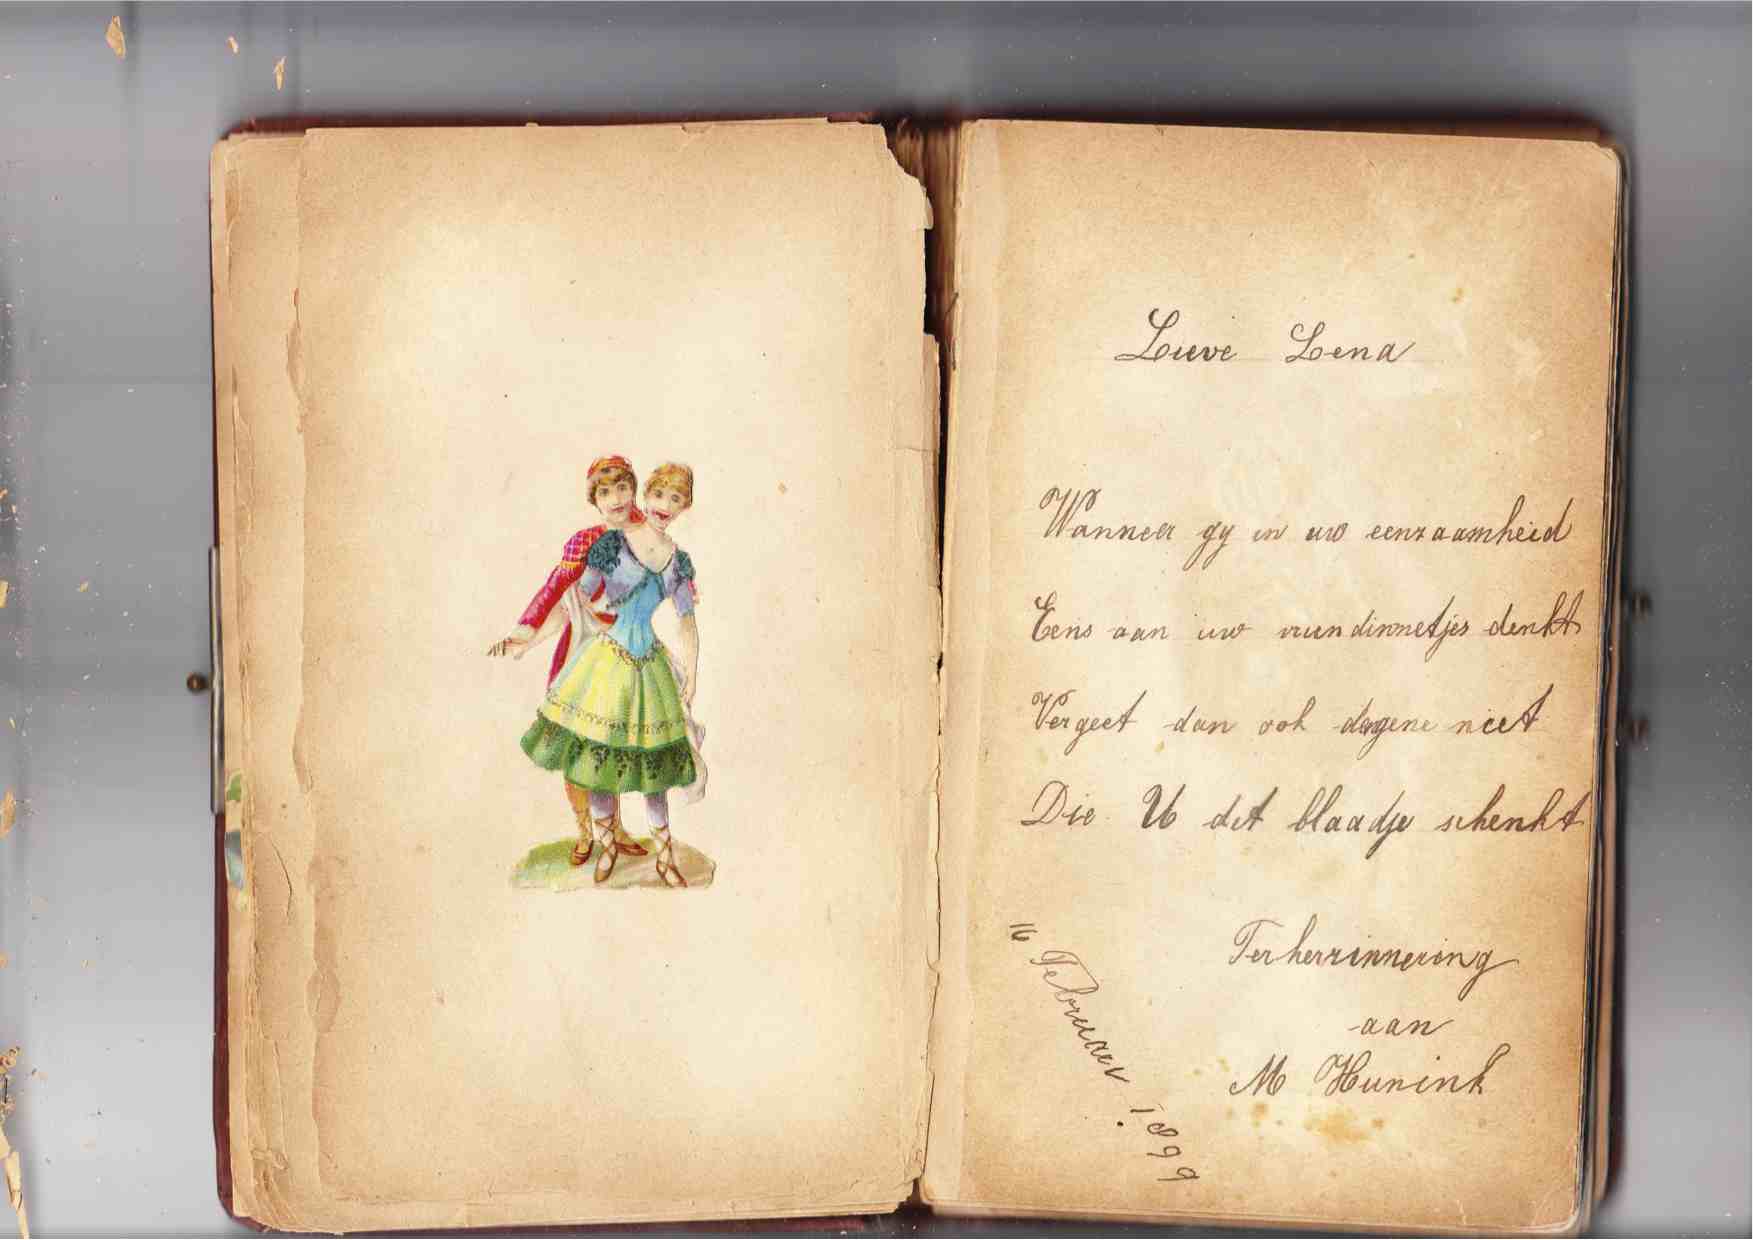 Lieve Lena
Wanneer gy in uw eenzaamheid
Eens aan uw vriendinnetjes denkt
Vergeet dan ook degene niet
Die U dit blaadje schenkt
Ter herrinnering
aan
M Hunink
16 Februari 1899